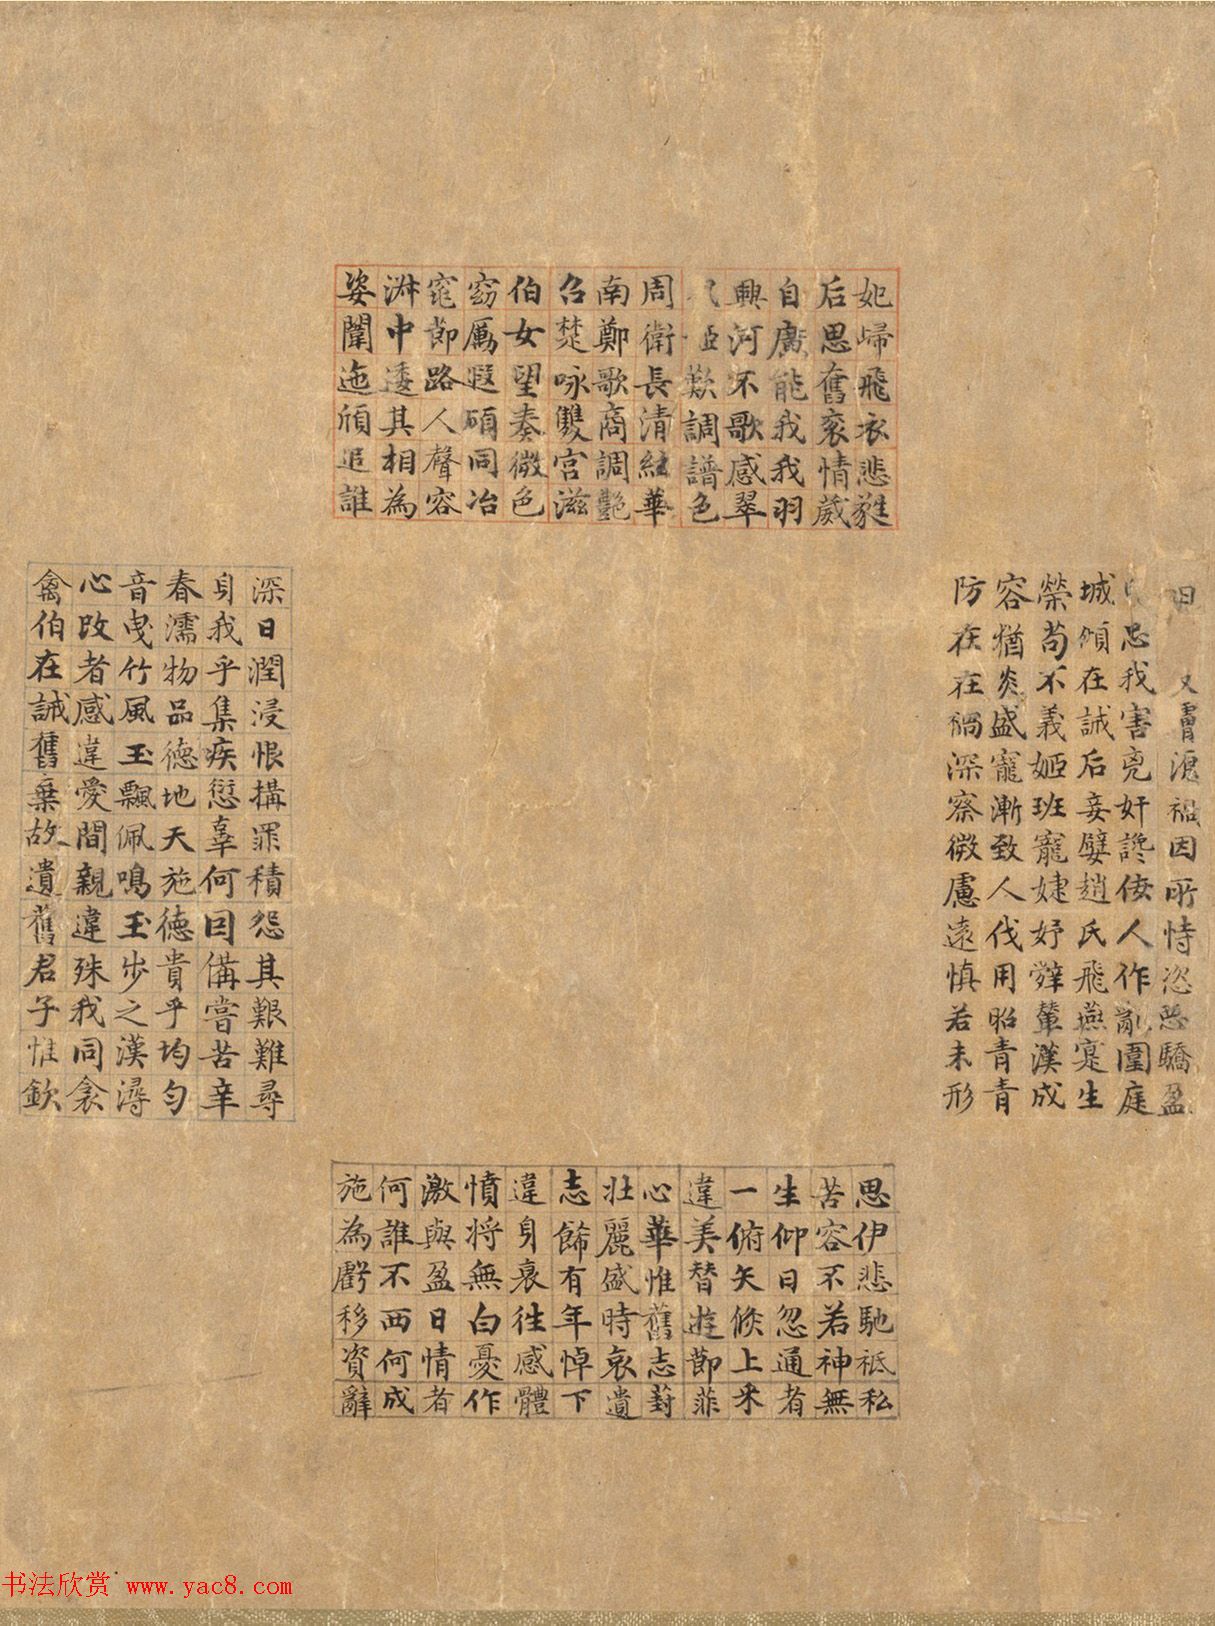 妃歸飛衣悲蕤
后思奮袞情葳
自廣能我我羽
興河不歌感翠
姬歎調譜色
周衛長清絃華
南鄭歌商調艷
召楚咏雙宮滋
伯女望奏微色
窈厲遐碩同冶
窕節路人聲容
淋中逶其相為
姿闈迤頎追誰
膚源禍因所恃恣驕盈
忠我害兇奸讒佞人作亂圍庭
城傾在誡后妾嬖趙氏飛燕寔生
榮苟不義姬班寵婕妤辭輦漢成
容猶炎盛寵漸致人伐用昭青青
防在在禍深察微慮遠慎若未形
深日潤浸恨搆罪積怨其艱難尋
身我乎集疾愆辜何因備嘗苦辛
春濡物品德地天施德貴乎均勻
音曳竹風玉飄佩鳴玉步之漢潯
心改者感違愛間親違殊我同衾
禽伯在誡舊棄故遺舊君子惟欽
思伊悲馳祗私
苦容不若神無
生仰日忽通者
一俯矢倏上采
違美替遊節菲
心華惟舊志葑
壯麗盛時哀遺
志飾有年悼下
違身衰往感體
憤將無白憂作
激與盈日情者
何誰不西何成
施為虧移資辭
书法欣赏 www.yac8.com